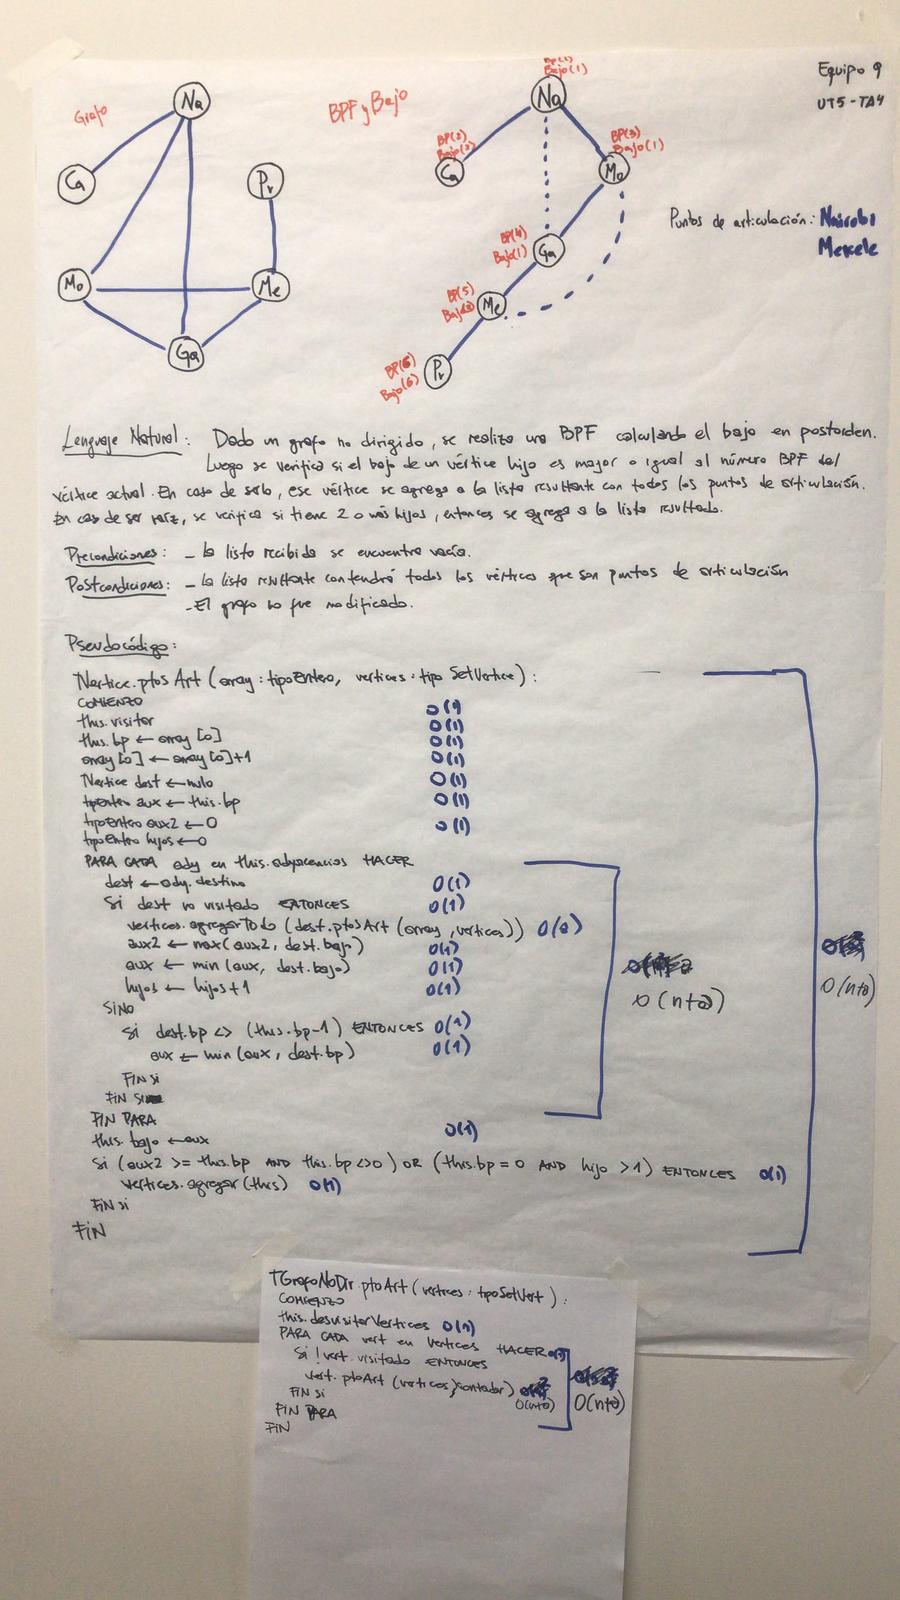 Equipo 9
UT5-TA4
Grafo
Na
Ca
Pr
Mo
Me
Ga
BPF y Bajo
BP(1)
Bajo(1)
Na
BP(2)
Bajo(2)
Ca
BP(3)
Bajo(1)
Mo
BP(4)
Bajo(1)
Ga
BP(5)
Me
BP(6)
Bajo(6)
Pr
Puntos de articulación: Nairobi
Mekele
Lenguaje Natural: Dado un grafo no dirigido, se realiza una BPF calculando el bajo en postorden.
Luego se verifica si el bajo de un vértice hijo es mayor o igual al número BPF del
vértice actual. En caso de serlo, ese vértice se agrega a la lista resultante con todos los puntos de articulación.
En caso de ser raíz, se verifica si tiene 2 o más hijos, entonces se agrega a la lista resultado.
Precondiciones: - La lista recibida se encuentra vacía.
Postcondiciones: - La lista resultante contendrá todos los vértices que son puntos de articulación
- El grafo no fue modificado.
Pseudocódigo:
TVertice.ptosArt (array: tipoEntero, vertices: tipo SetVertice):
COMIENZO O(1)
this.visitar O(1)
this.bp ← array [0] O(1)
array [0] ← array [0]+1 O(1)
TVertice dest ← nulo O(1)
tipoEntero aux ← this.bp O(1)
tipoEntero aux2 ← 0 O(1)
tipoEntero hijos ← 0
PARA CADA ady en this.adyacencias HACER
dest ← ady.destino O(1)
Si dest no visitado ENTONCES O(1)
vertices.agregarTodo (dest.ptosArt (array, vertices)) O(a)
aux2 ← max(aux2, dest.bajo) O(1)
aux ← min (aux, dest.bajo) O(1)
hijos ← hijos+1 O(1)
SINO
Si dest.bp <> (this.bp-1) ENTONCES O(1)
aux ← min (aux, dest.bp) O(1)
FIN SI
FIN SI
FIN PARA
this.bajo ← aux O(1)
Si (aux2 >= this.bp AND this.bp <>0) OR (this.bp = 0 AND hijo >1) ENTONCES O(1)
vertices.agregar(this) O(1)
FIN SI
FIN
O(n+a)
O(n+a)
TGrafoNoDir.ptoArt (vertices: tipoSetVert):
COMIENZO
this.desvisitarVertices O(n)
PARA CADA vert en vertices HACER
Si !vert.visitado ENTONCES
vert.ptoArt (vertices, contador)
O(n+a)
FIN SI
FIN PARA
FIN
O(n+a)